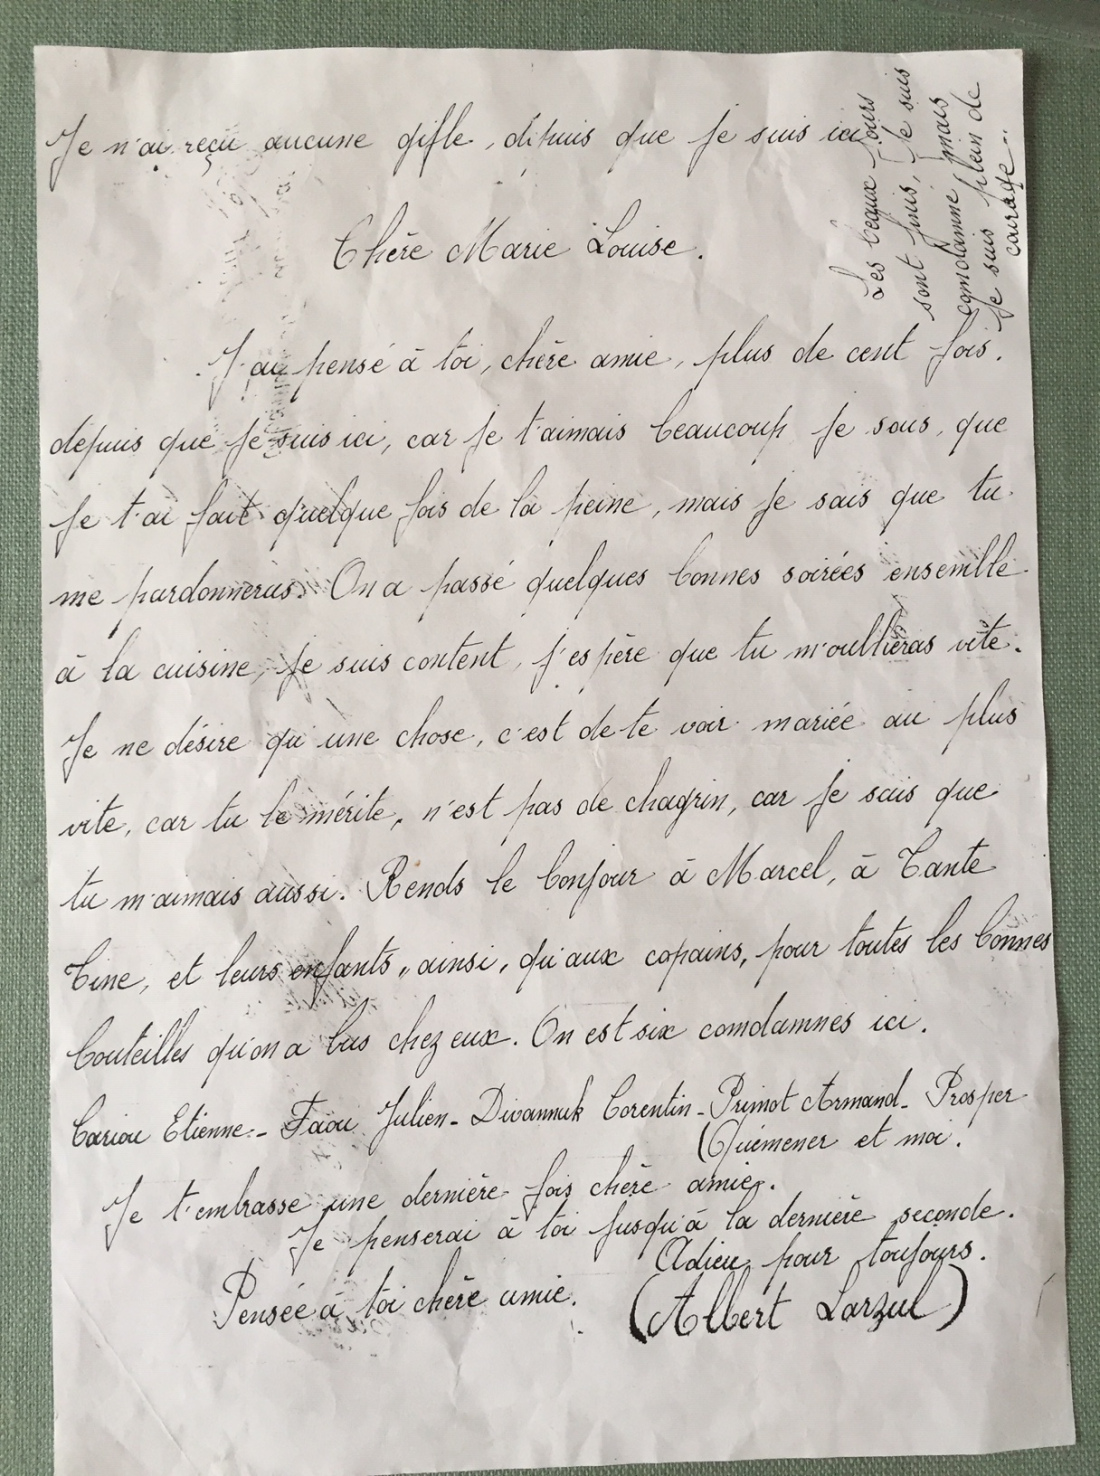 Je n'ai reçu aucune gifle, depuis que je suis ici
Les beaux jours
sont finis, je suis
comdamné mais
je suis plein de
courage..
Chère Marie Louise.
J'ai pensé à toi, chère amie, plus de cent fois.
depuis que je suis ici, car je t'aimais beaucoup je sais, que
je t'ai fait quelque fois de la peine, mais je sais que tu
me pardonneras. On a passé quelques bonnes soirées ensemble
à la cuisine, je suis content, j'espère que tu m'oublieras vite.
Je ne désire qu'une chose, c'est de te voir mariée au plus
vite, car tu le mérite, n'est pas de chagrin, car je sais que
tu m'aimais aussi. Rends le bonjour à Marcel, à Tante
Tine, et leurs enfants, ainsi, qu'aux copains, pour toutes les bonnes
bouteilles qu'on a bus chez eux. On est six comdamnes ici.
Cariou Etienne - Faou Julien - Divannuk Corentin - Primot Armand - Prosper
Quémener et moi.
Je t'embrasse une dernière fois chère amie.
Je penserai à toi jusqu'à la dernière seconde.
Adieu pour toujours.
Pensée à toi chère amie.
(Albert Larzul)